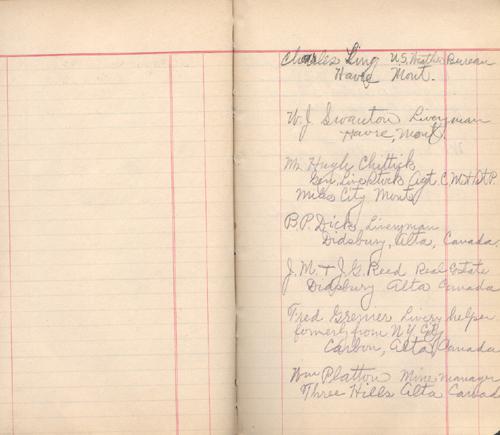 Charles Ling U.S. Weather Bureau
Havre Mont.
W. J. Swanton Liveryman
Havre, Mont.
Mr Hugh Chittick
Gen. Livestock Agt. C. M. & St. P.
Miles City Mont
B. P. Dick, Liveryman
Didsbury, Alta, Canada
J. M. & J. G. Reed Real Estate
Didsbury Alta Canada
Fred Gremer Livery helper
formerly from N.Y. City
Carbon, Alta, Canada
Wm Platton Mine manager
Three Hills Alta Canad